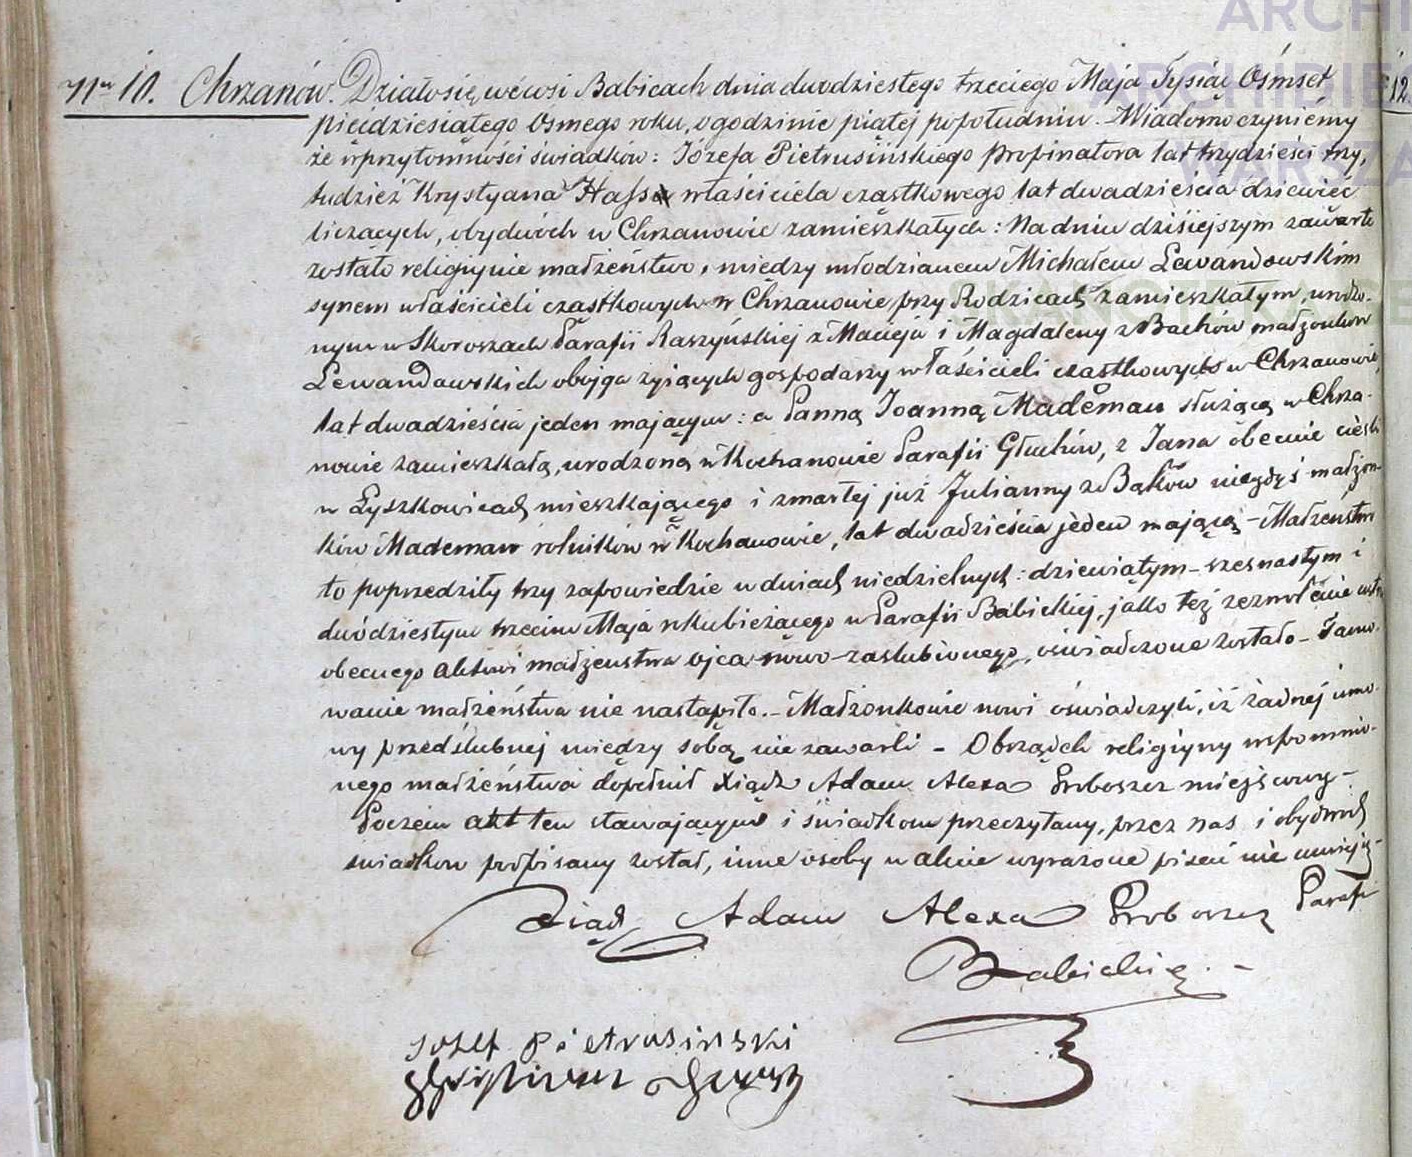 Nr 10. Chrzanów. Działo się we wsi Babicach dnia dwudziestego trzeciego Maja Tysiąc Ośmset
pięćdziesiątego Osmego roku, o godzinie piątej popołudniu. Wiadomo czyniemy
że w przytomności świadków: Józefa Pietrusińskiego Propinatora lat trzydzieści trzy,
tudzież Krystyana Hass właściciela cząstkowego lat dwadzieścia dziewięć
liczących, obydwóch w Chrzanowie zamieszkałych: Na dniu dzisiejszym zawarte
zostało religijnie małżeństwo, między młodzianem Michałem Lewandowskim
synem właścicieli cząstkowych w Chrzanowie przy Rodzicach zamieszkałym, urodzo-
nym w Skoroszach Parafii Raszyńskiej z Macieja i Magdaleny z Bachów małżonków
Lewandowskich obojga żyiących gospodarzy właścicieli cząstkowych w Chrzanowie,
lat dwadzieścia jeden mającym: a Panną Joanną Mademan służącą w Chrza-
nowie zamieszkałą, urodzoną w Kochanowie Parafii Głuchów, z Jana obecnie cieśli
w Łyszkowicach mieszkającego i zmarłej już Julianny z Bąków niegdyś małżon-
ków Mademan rolników w Kochanowie, lat dwadzieścia jeden mającą - Małżeństwo
to poprzedziły trzy zapowiedzie w dniach niedzielnych: dziewiątym - szesnastym i
dwódziestym trzecim Maja roku bieżącego w Parafii Babickiej, jako też zezwolenie ustne
obecnego aktowi małżeństwa ojca nowo-zaślubionego, oświadczone zostało - Tamo-
wanie małżeństwa nie nastąpiło. - Małżonkowie nowi oświadczyli, iż żadnej umo-
wy przedślubnej między sobą nie zawarli - Obrządek religijny wspomnio-
nego małżeństwa dopełnił Xiądz Adam Alexa Proboszcz miejscowy -
Poczem akt ten stawającym i świadkom przeczytany, przez nas i obydwóch
świadków podpisany został, inne osoby w akcie wyrażone pisać nie umieją -
Xiądz Adam Alexa Proboszcz Parafii
Babickiej. -
Jozef Pietrusinski
Christian
12.
ARCHI
ARCHIDIE
WARSZA
SKANOTEKA